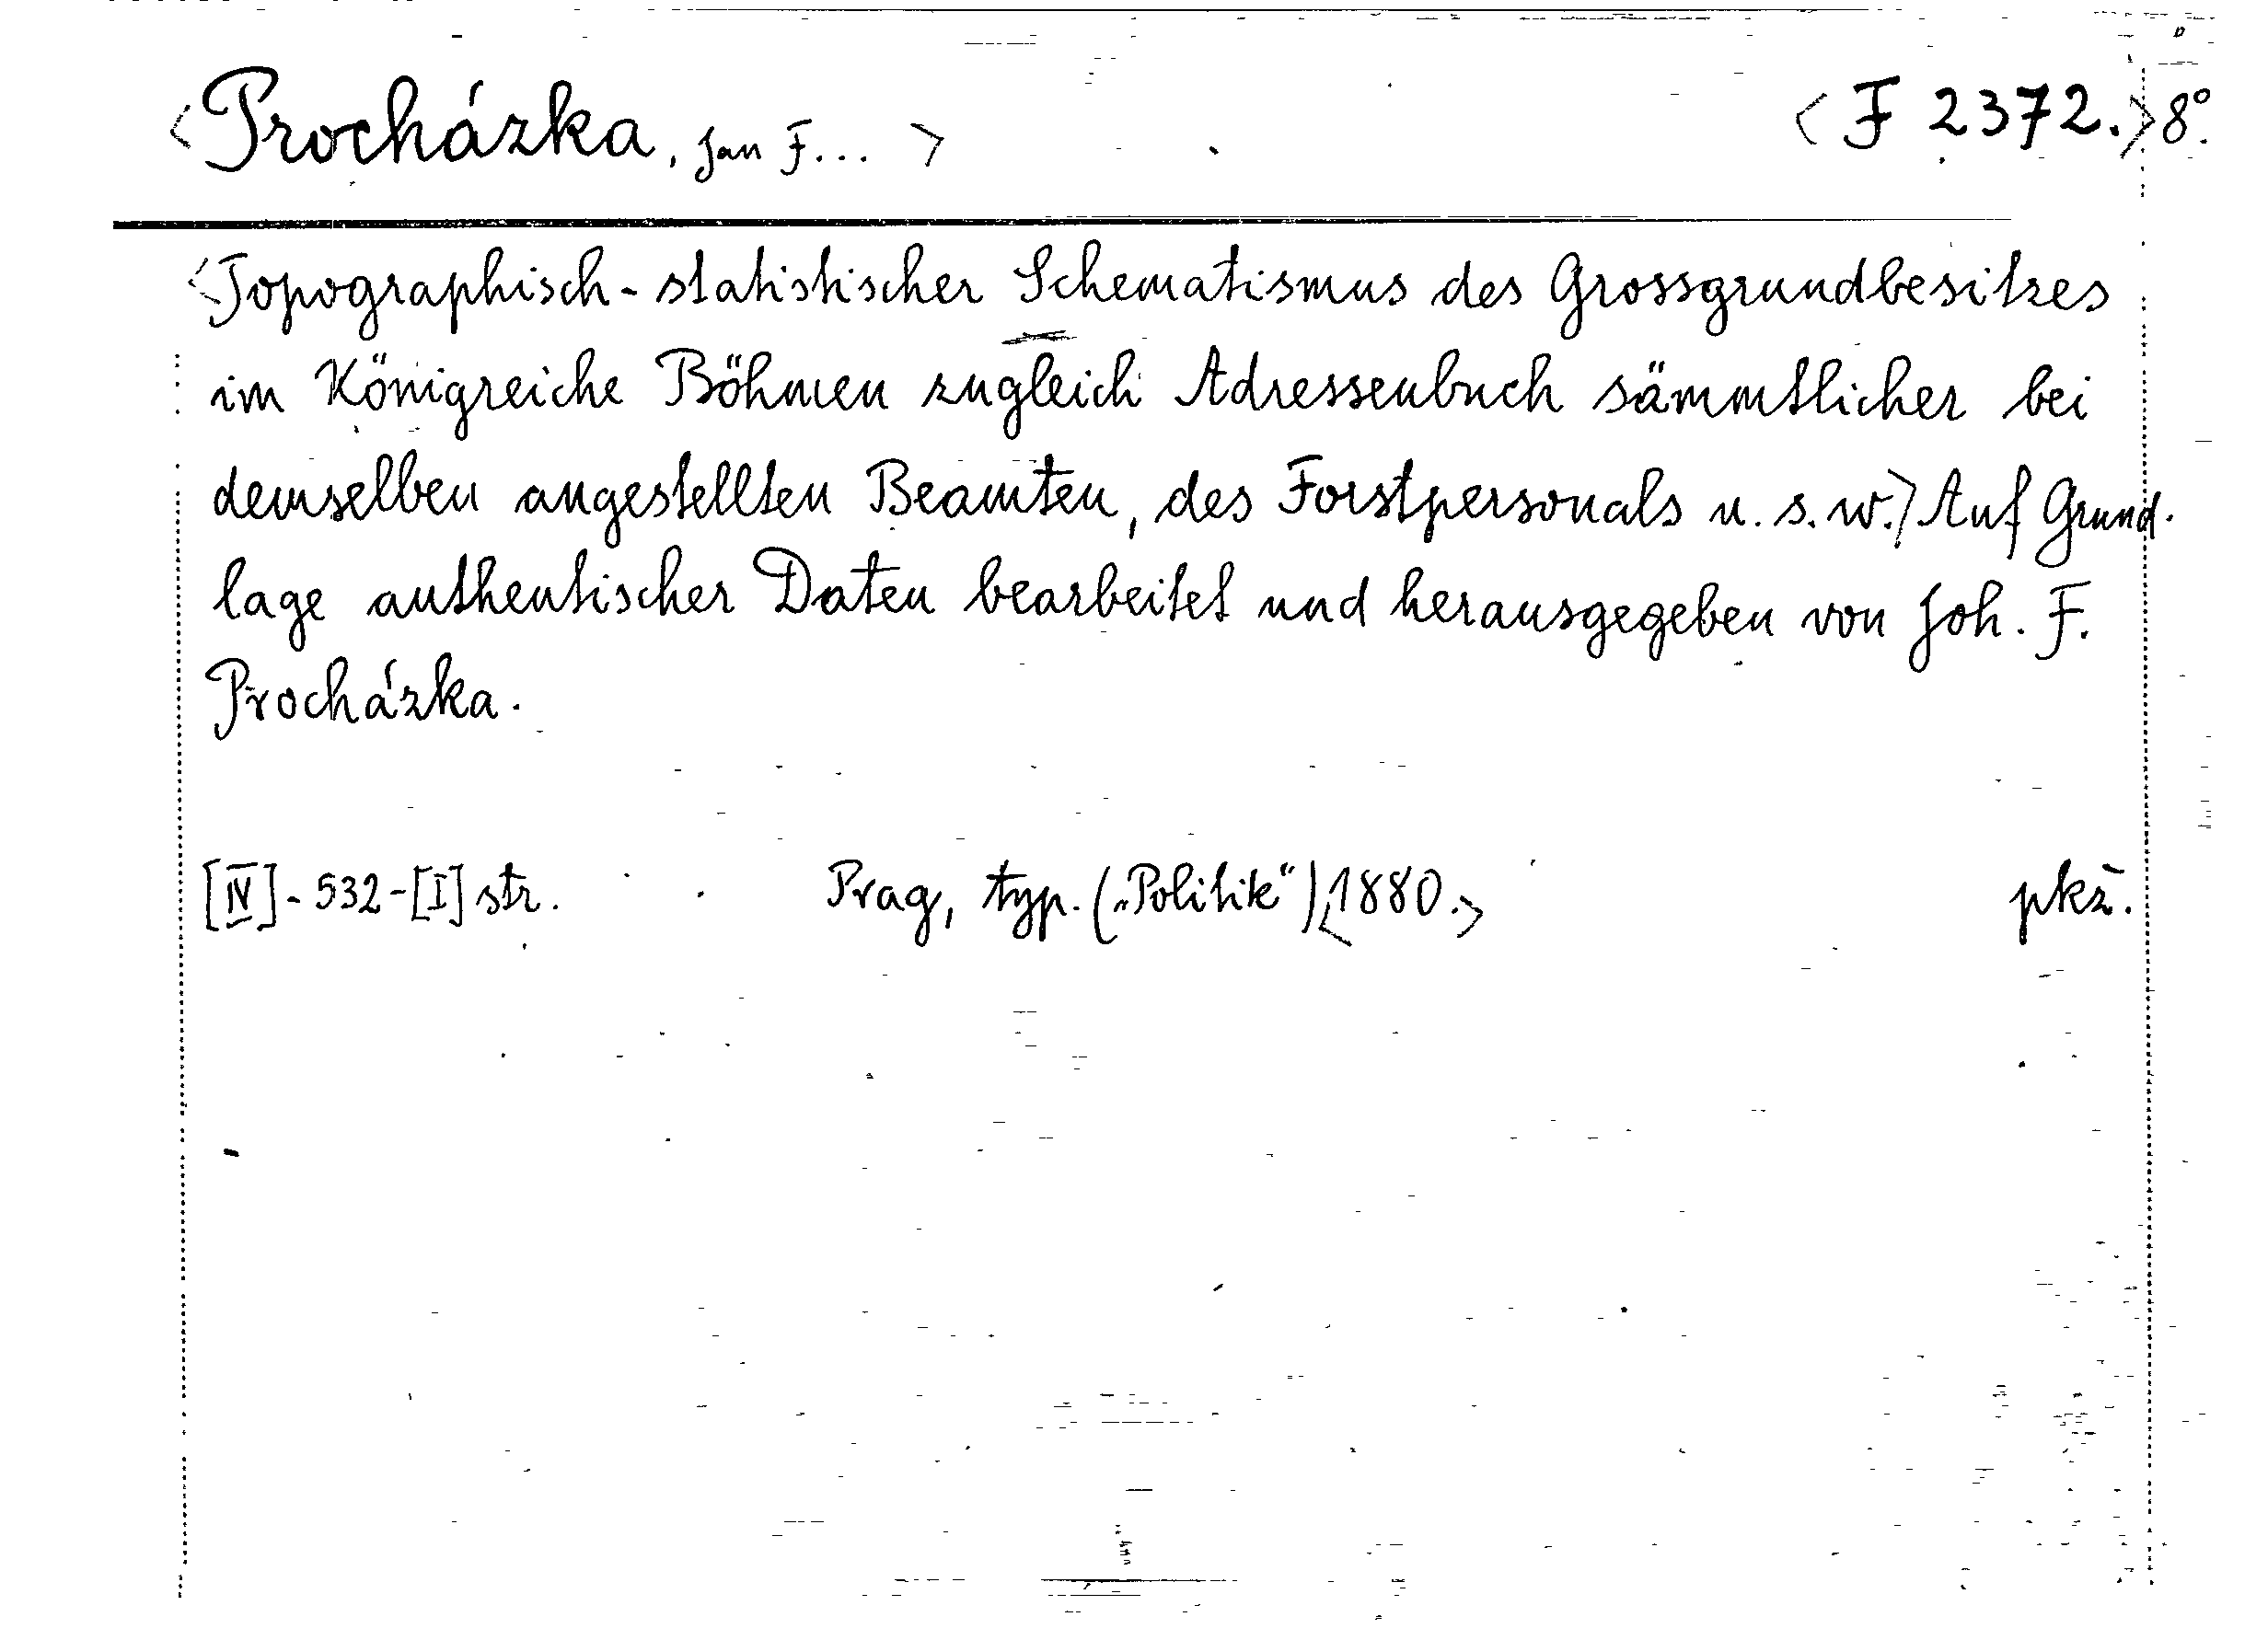 <Procházka, Jan F...> <F 2372.> 8°.
<Topographisch-statistischer Schematismus des Grossgrundbesitzes
im Königreiche Böhmen zugleich Adressenbuch sämmtlicher bei
demselben angestellten Beamten, des Forstpersonals u. s. w.> Auf Grund-
lage authentischer Daten bearbeitet und herausgegeben von Joh. F.
Procházka.
[IV]-532-[I] str. Prag, typ. („Politik“) <1880.> pkž.